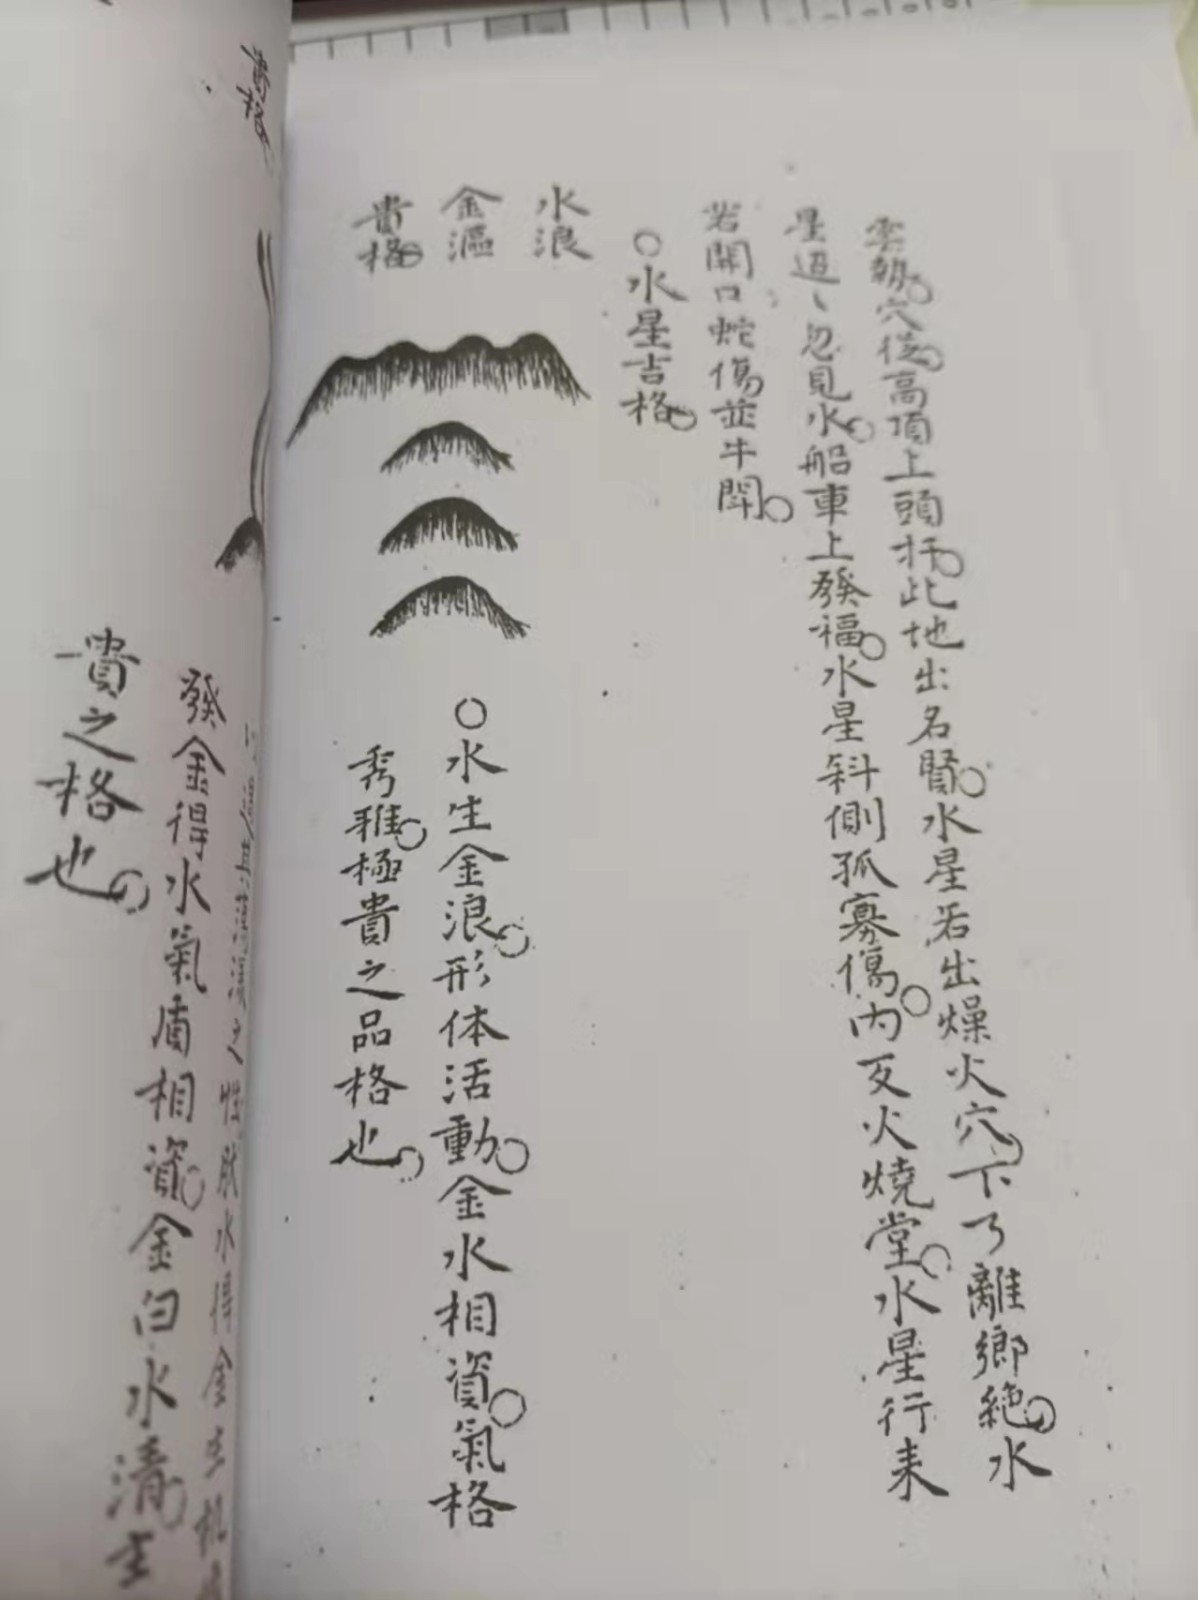 雲勢穴從高頂上頭扦此地出名賢水星若出燥火穴下了離鄉絶水
星迢〻忽見水船車上發福水星斜側孤寡傷内亥火燒堂水星行来
若開口蛇傷並牛鬥
○水星吉格
水浪
金漚
貴格
○水生金浪形体活動金水相資氣格
秀雅極貴之品格也
貴格
之性脉水得金生机
發金得水氣盾相資金白水清主
一貴之格也